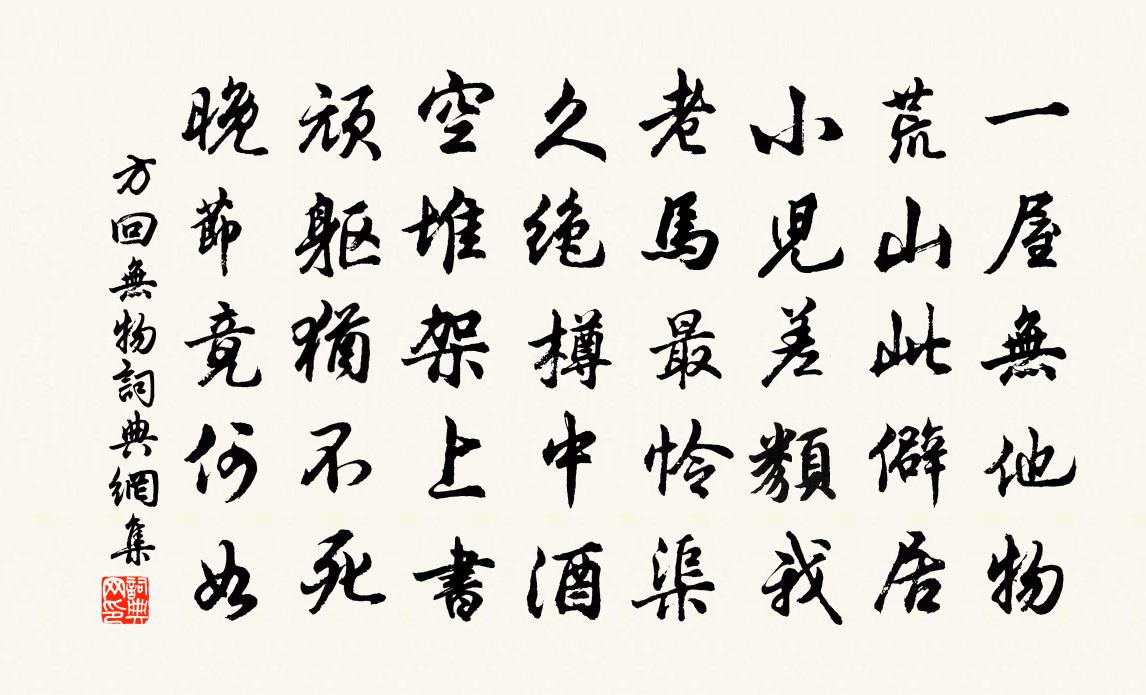 一屋無他物
荒山此僻居
小兒差類我
老馬最怜渠
久绝樽中酒
空堆架上書
頑軀猶不死
晚節竟何如
方回無物詞典網集
詞典網印